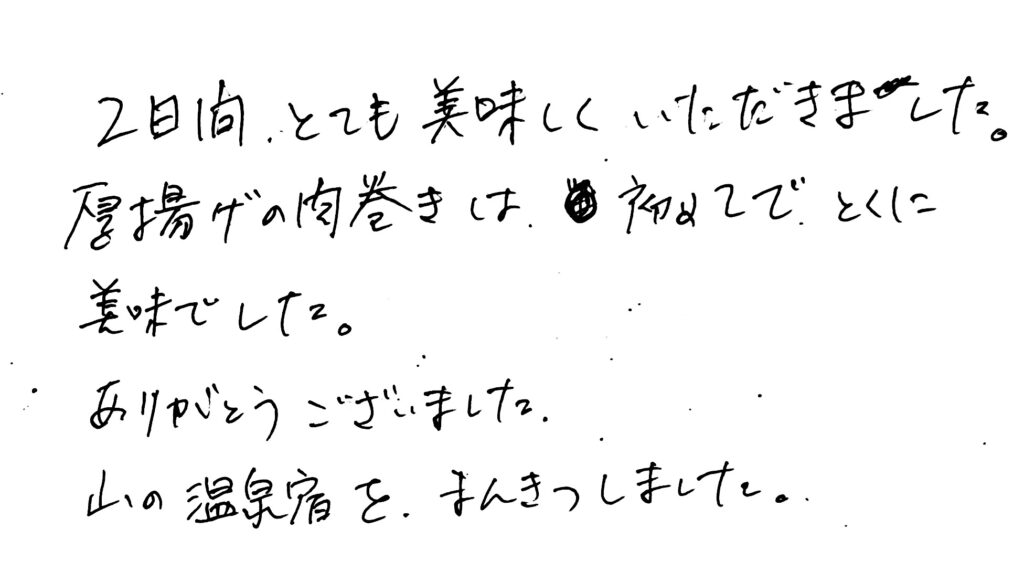 2日間、とても美味しくいただきました。
厚揚げの肉巻きは、初めてで、とくに
美味でした。
ありがとうございました。
山の温泉宿を、まんきつしました。